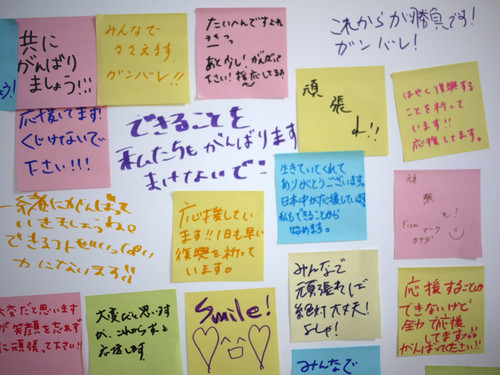 共に
がんばり
ましょう!!!
みんなで
ささえます。
ガンバレ!!
たいへんですよね
あと少し! がんばって
下さい! 応援してます
これからが勝負です!
ガンバレ!
う!
応援してます!
くじけないで
下さい!!!
できることを
私たちもがんばります
まけないで!
頑
張
れ!!
はやく復興する
ことを祈って
います!!
応援してます。
生きていてくれて
ありがとうございます。
日本中が応援しています
私もできることから
始めます。
頑
張
れ!
From マーク
カナダ
一緒にがんばって
いきましょうね。
できるコトせいいっぱい
カになります!!
応援してい
ます!!1日も早い
復興を祈って
います。
みんなで
頑張れば
絶対大丈夫!
よしゃ!
大変だと思います
が笑顔を忘れず
に頑張って下さい!!
大変だと思いますが
が、これからずっと
応援します。
Smile!
応援することしか
できないけど
全力で応援
してます。
がんばって下さい!!
みんなで